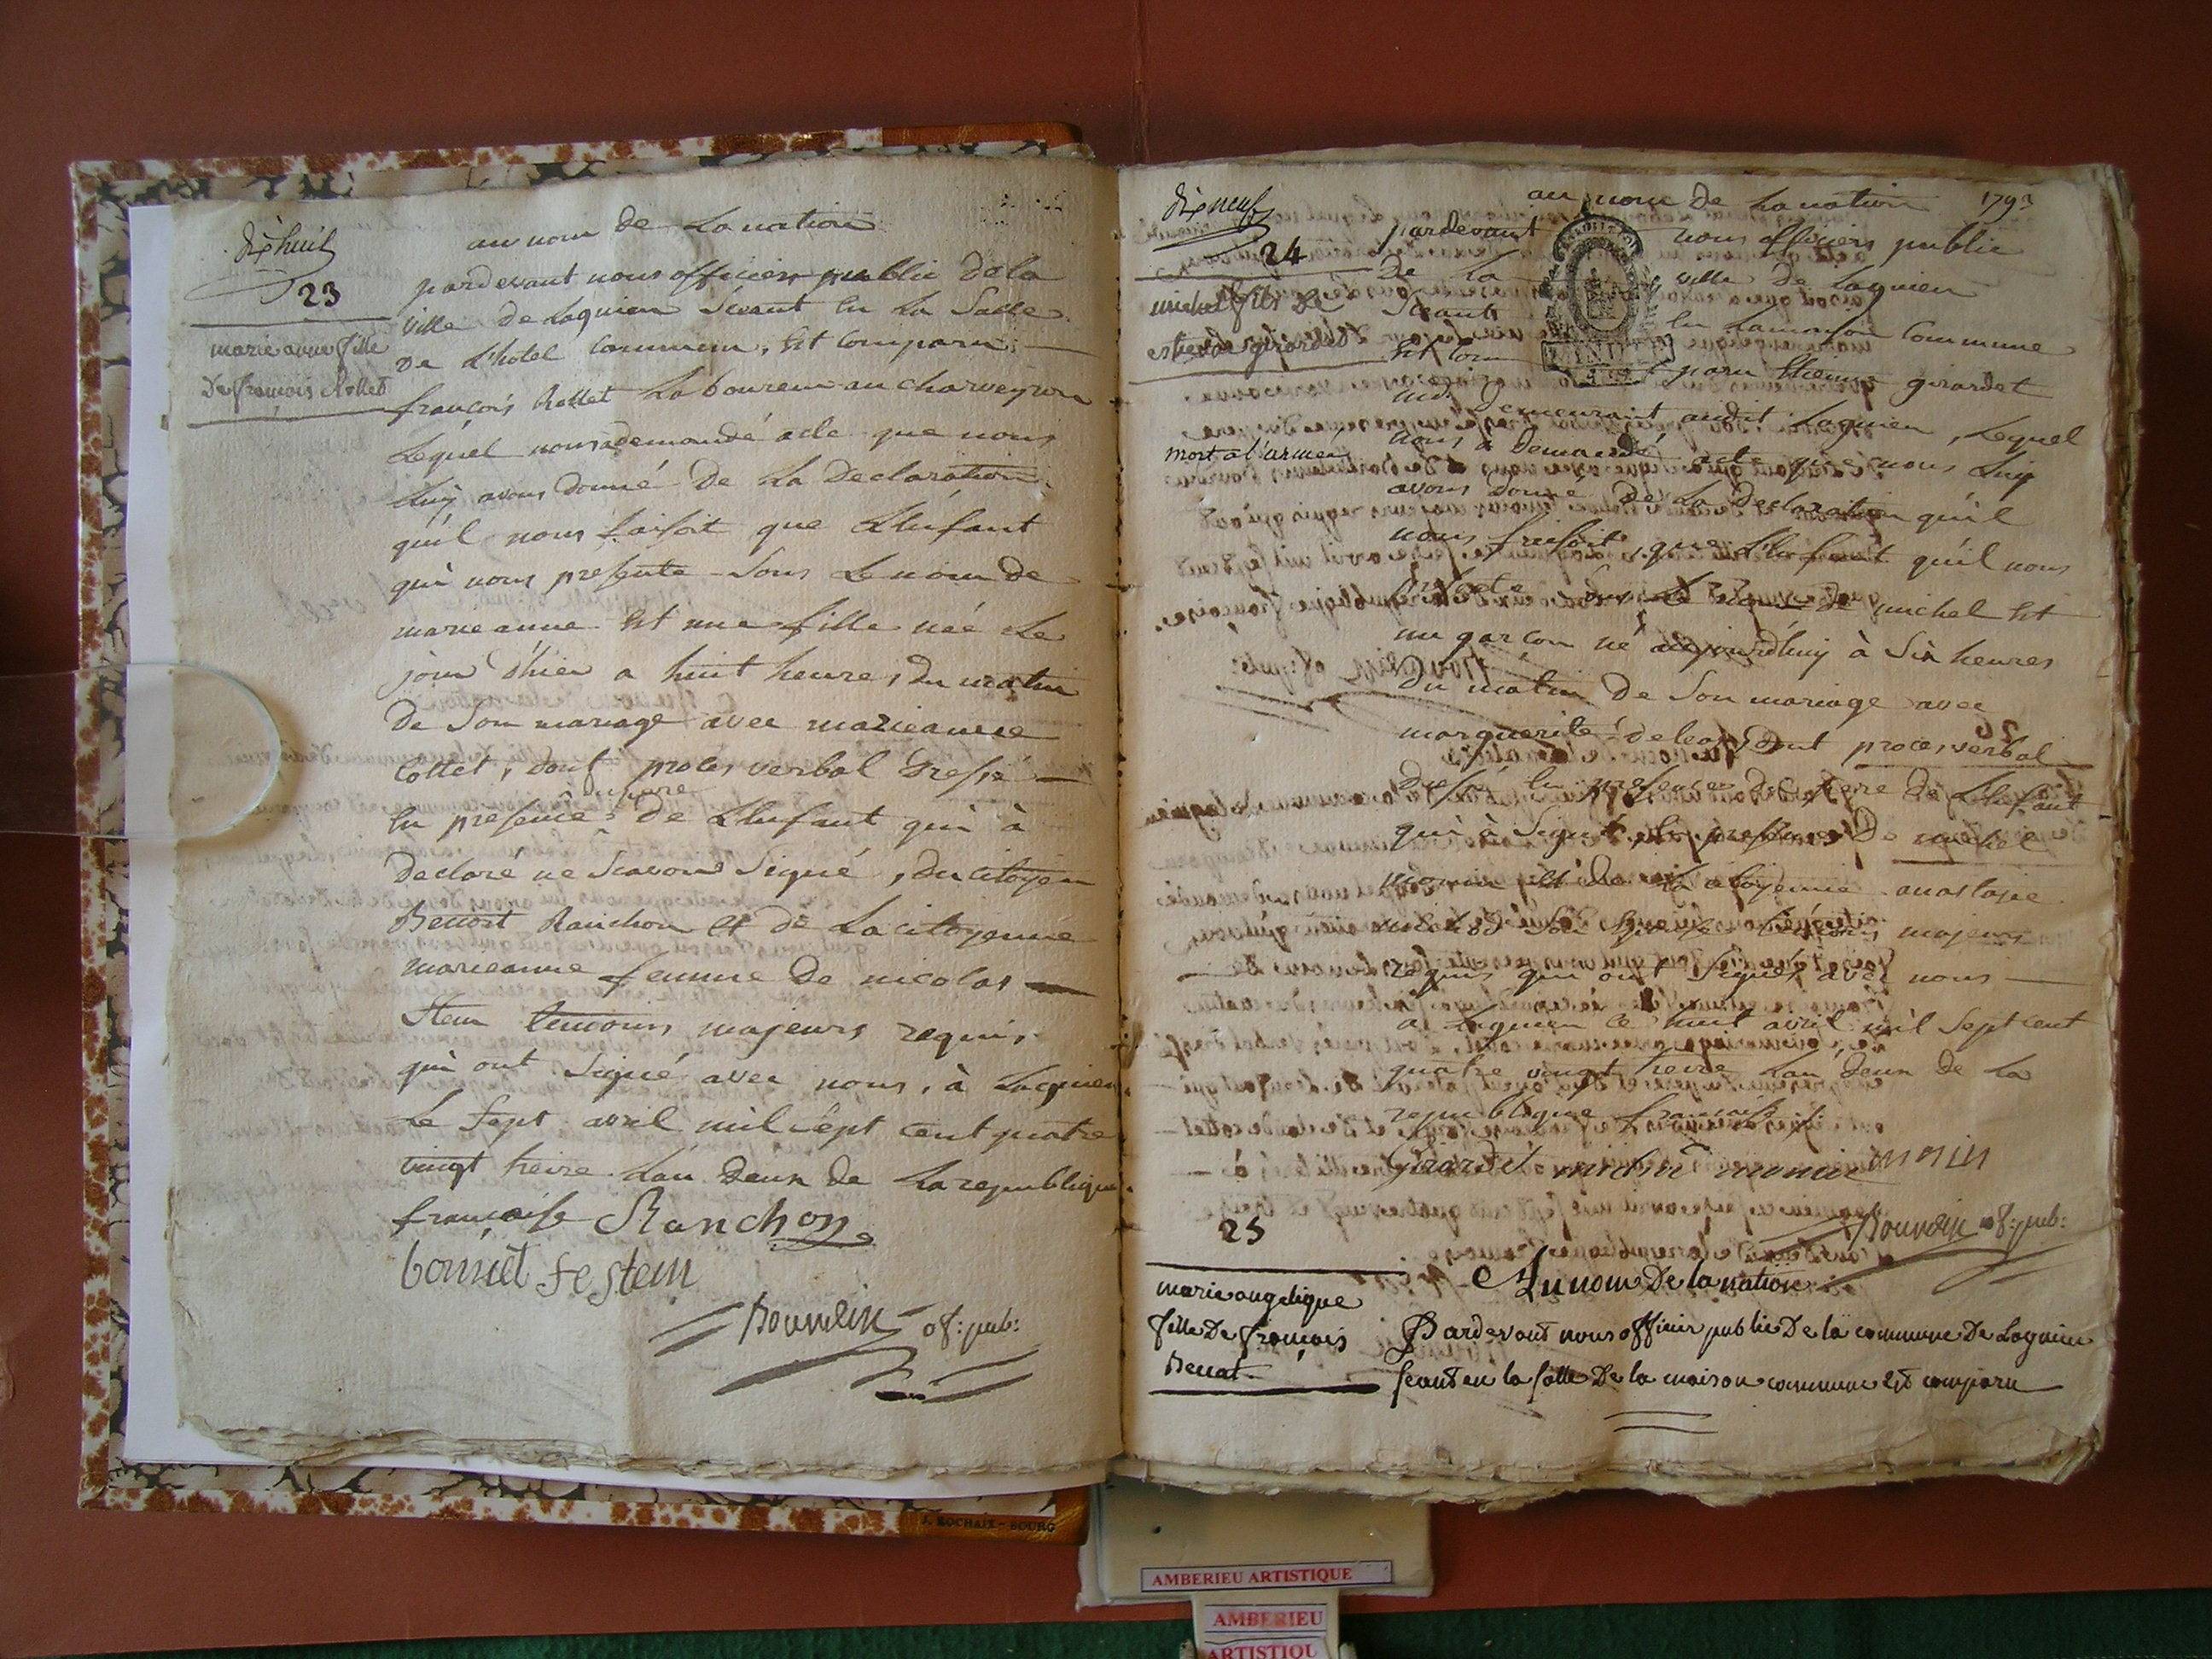 dix huit
23
marie anne fille
De françois Rollet
au nom de La nation
pardevant nous officier public de la
ville de Lagnieu Séeant En La Salle
De L'hotel Commun, Est Comparu
françois Rollet Laboureur au charveyron
Lequel nous a demandé acte que nous
Luy avons donné De La Declaration
qu'il nous faisoit que L'Enfant
qui nous presente Sous Le nom De
marie anne Est une fille née Le
jour d'hier a huit heures du matin
De Son mariage avec marieanne
Collet, dont proces verbal Dressé
du pere
En presence de L'Enfant qui à
declaré ne Scavoir Signé, du citoyen
Benoit Ranchon et de La citoyenne
marieanne femme De nicolas
Stein temoins majeurs requis
qui ont Signé avec nous, à Lagnieu
Le Sept avril mil sept cent quatre
vingt treize L'an Deux de La republique
françoise Ranchon
bonnet fe stein
Bouvein of: pub:
J. ROCHAIX - BOURG
dix neuf
24
michel fils de
estienne girardet
mort a l'armée
1793
au nom de La nation
pardevant nous officier public
De La ville De Lagnieu
Séeant En La maison Commune
Est Comparu Etienne girardet
md. Demeurant audit Lagnieu, Lequel
nous a Demandé acte que nous Luy
avons donné De La Declaration qu'il
nous faisoit, que L'Enfant qu'il nous
presente Sous Le nom De michel Est
un garçon né aujourd'huy à Six heures
Du matin De Son mariage avec
marguerite Dont proces verbal
Dressé En presence du pere De L'Enfant
qui à Signé, En presence De michel
monin et De La citoyenne anastasie
Son Epouse temoins majeurs
requis qui ont Signés avec nous
a Lagnieu ce huit avril mil Sept cent
quatre vingt treize L'an deux de La
republique françoise
Girardet michel monin monin
Bouvein of: pub:
25
marie angelique
fille De françois
Benat
Au nom De la nation
Pardevant nous officier public De la commune De Lagnieu
seant en la salle De la maison commune est comparu
26
AMBERIEU ARTISTIQUE
AMBERIEU
ARTISTIQU